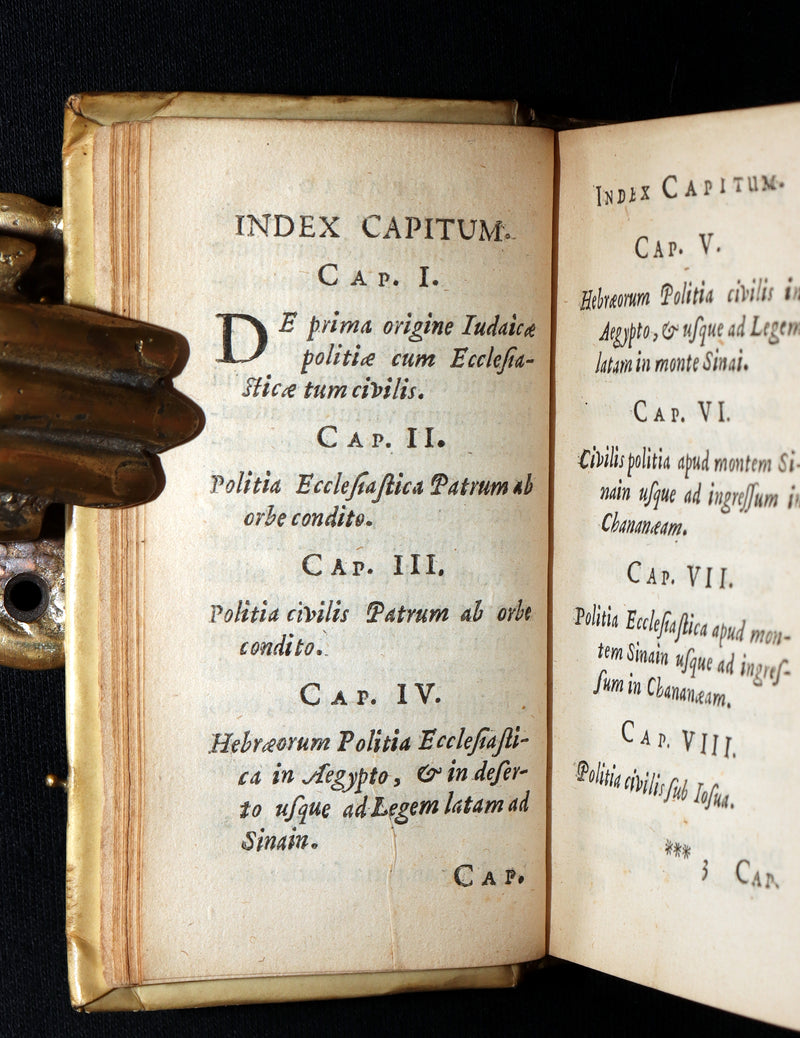 INDEX CAPITUM.
CAP. I.
DE prima origine Iudaicæ
politiæ cum Ecclesia-
sticæ tum civilis.
CAP. II.
Politia Ecclesiastica Patrum ab
orbe condito.
CAP. III.
Politia civilis Patrum ab orbe
condito.
CAP. IV.
Hebræorum Politia Ecclesiasti-
ca in Aegypto, & in deser-
to usque ad Legem latam ad
Sinain.
CAP.
INDEX CAPITUM.
CAP. V.
Hebræorum Politia civilis in
Aegypto, & usque ad Legem
latam in monte Sinai.
CAP. VI.
Civilis politia apud montem Si-
nain usque ad ingressum in
Chananæam.
CAP. VII.
Politia Ecclesiastica apud mon-
tem Sinain usque ad ingres-
sum in Chananæam.
CAP. VIII.
Politia civilis sub Iosua.
*** 3 CAP.